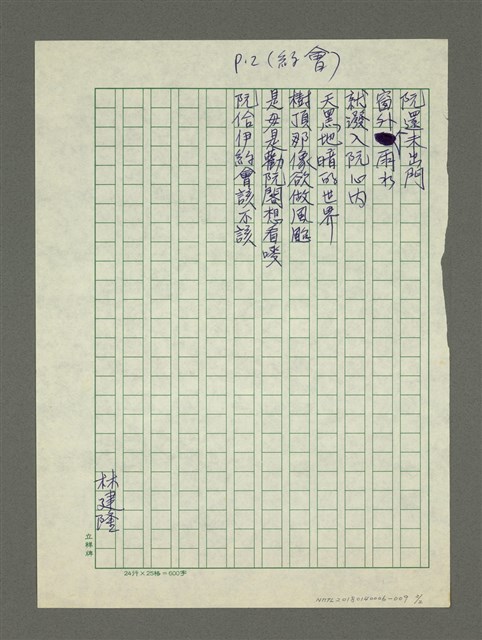 P.2（約會）
阮還未出門
窗外雨水
就潑入阮心內
天黑地暗的世界
樹頂那像欲做風颱
是毋是勸阮閣想看嘜
阮佮伊約會該不該
林建隆
立輝牌
24行×25格=600字
NMTL20180140006-009 2/2